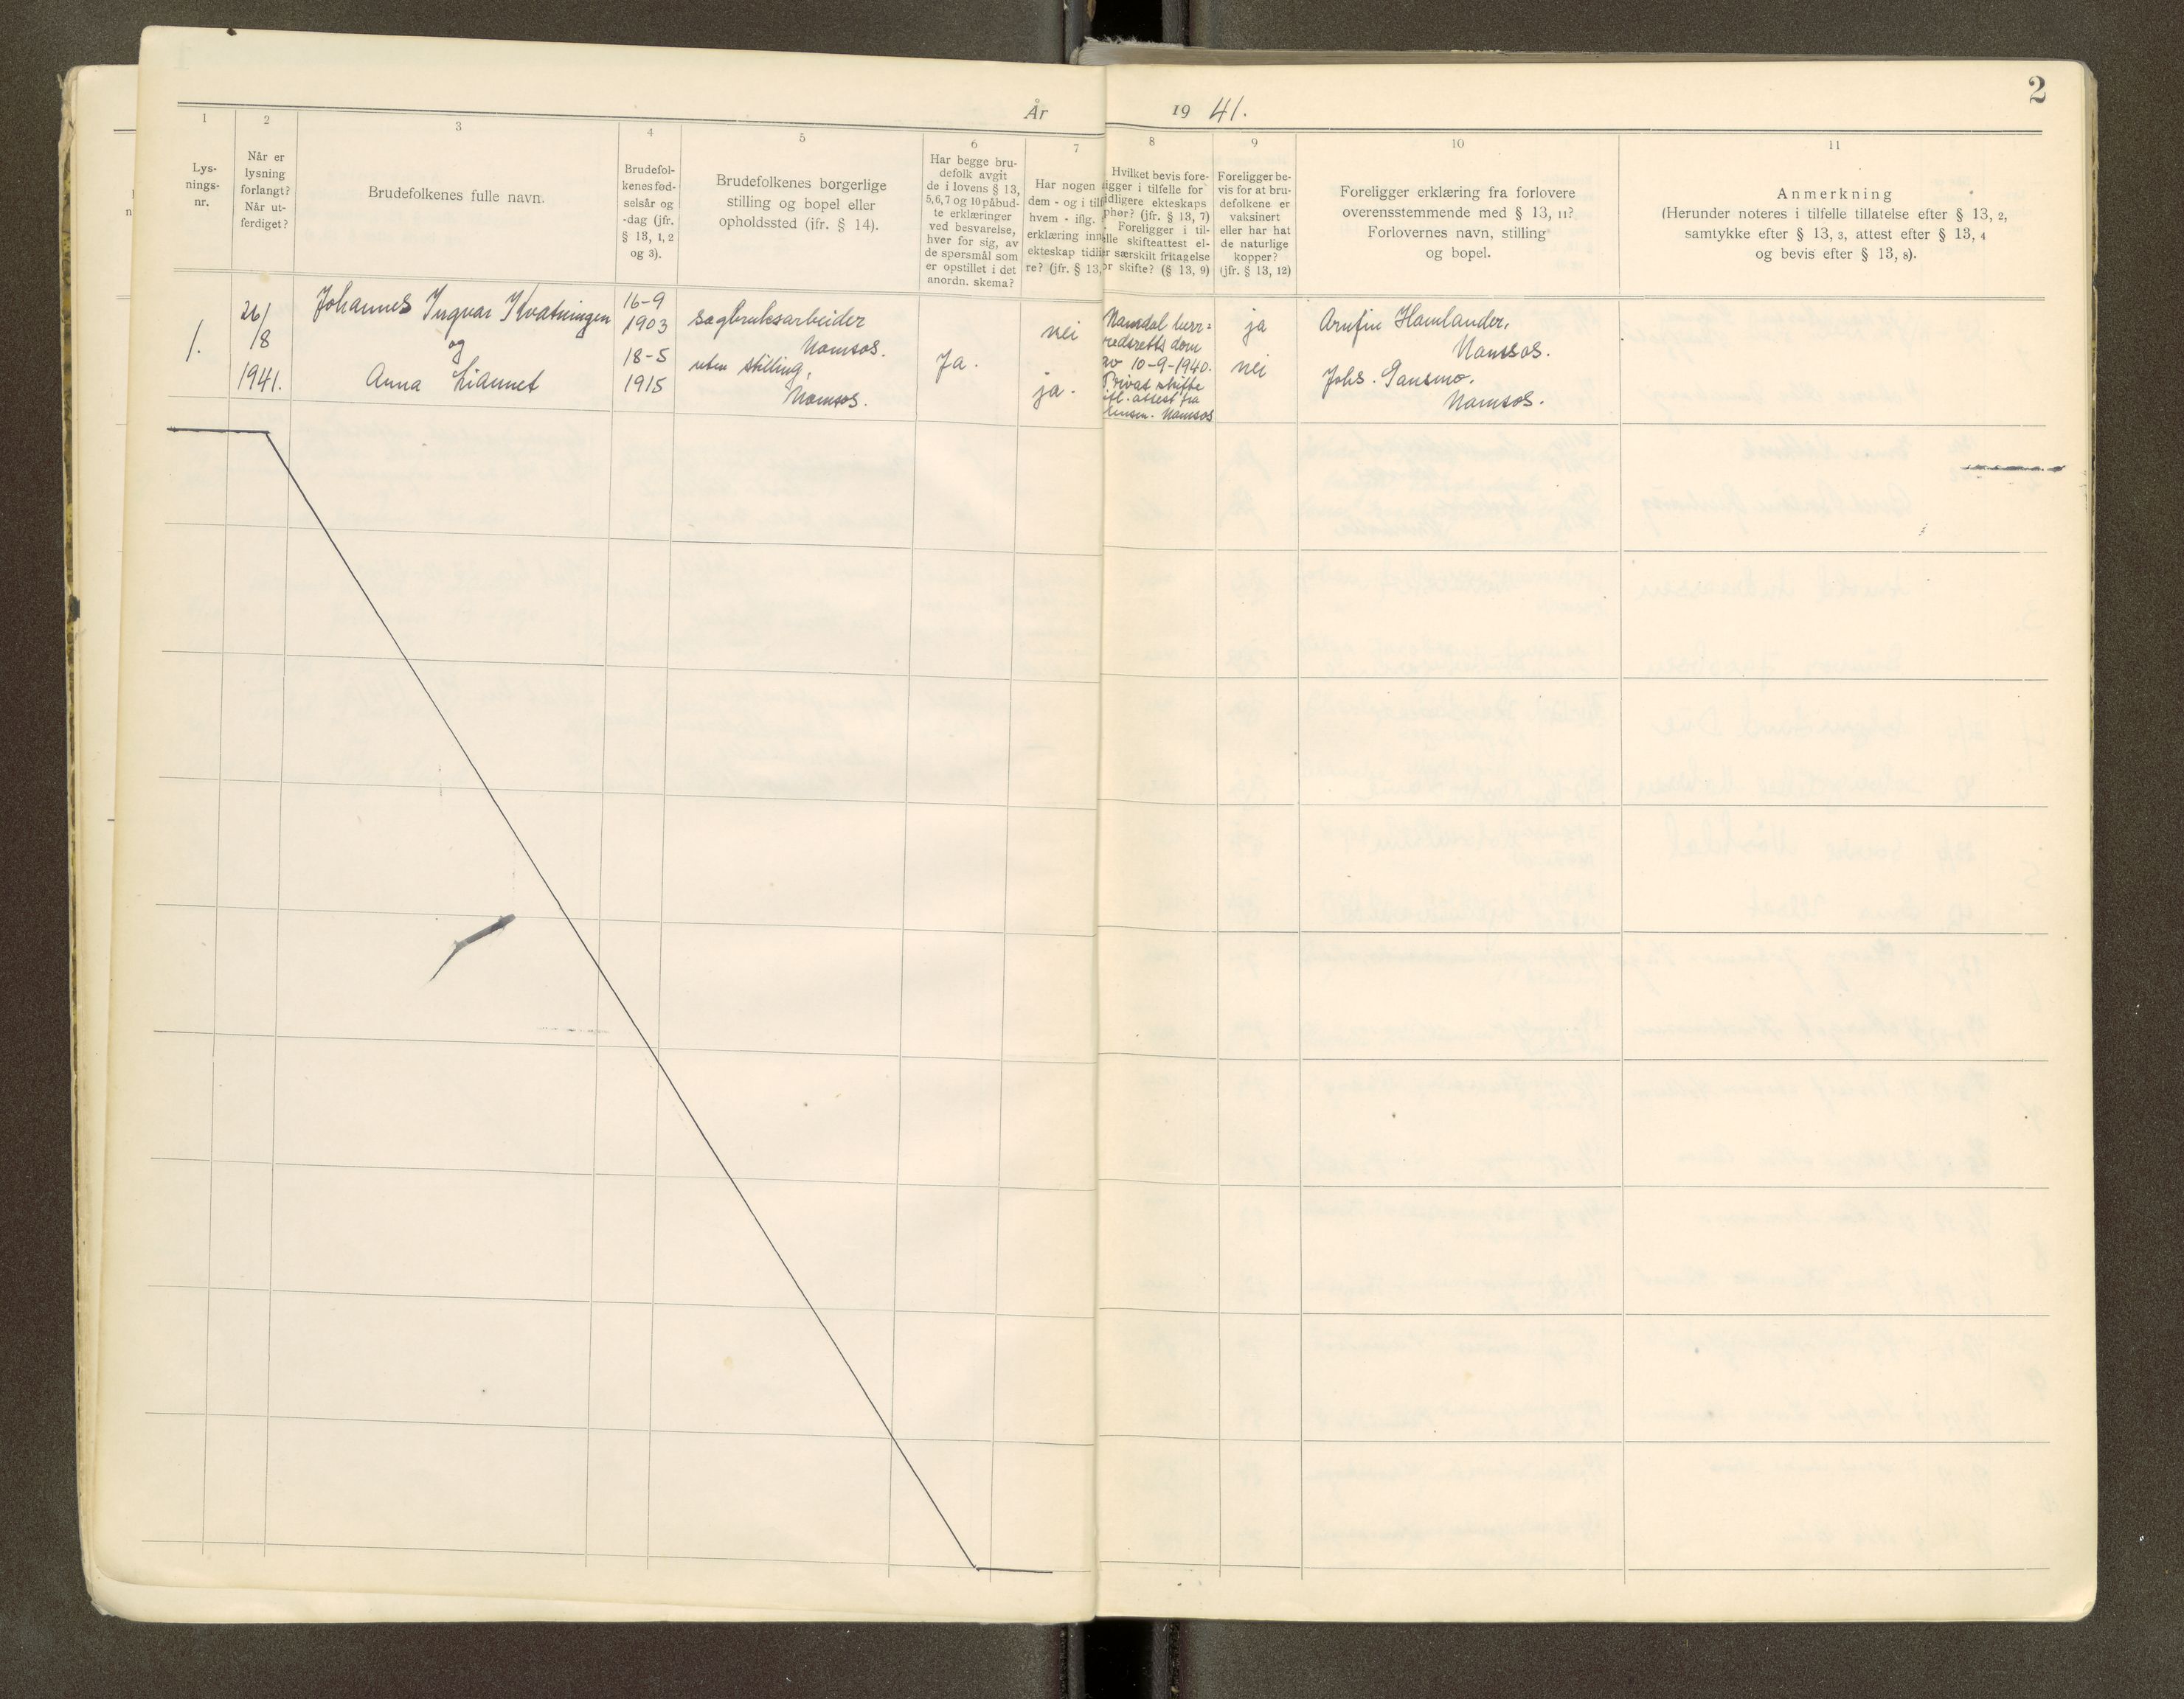 2
År 19 41.
1
Lys-
nings-
nr.
2
Når er
lysning
forlangt?
Når ut-
ferdiget?
3
Brudefolkenes fulle navn.
4
Brudefol-
kenes fød-
selsår og
-dag (jfr.
§ 13, 1, 2
og 3).
5
Brudefolkenes borgerlige
stilling og bopel eller
opholdssted (jfr. § 14).
6
Har begge bru-
defolk avgit
de i lovens § 13,
5,6,7 og 10 påbud-
te erklæringer
ved besvarelse,
hver for sig, av
de spørsmål som
er opstillet i det
anordn. skema?
7
Har nogen
dem - og i tilf
hvem - iflg.
erklæring inn
ekteskap tidli
re? (jfr. § 13,
8
Hvilket bevis fore-
ligger i tilfelle for
idligere ekteskaps
phør? (jfr. § 13, 7)
Foreligger i til-
elle skifteattest el-
er særskilt fritagelse
or skifte? (§ 13, 9)
9
Foreligger be-
vis for at bru-
defolkene er
vaksinert
eller har hat
de naturlige
kopper?
(jfr. § 13, 12)
10
Foreligger erklæring fra forlovere
overensstemmende med § 13, 11?
Forlovernes navn, stilling
og bopel.
11
Anmerkning
(Herunder noteres i tilfelle tillatelse efter § 13, 2,
samtykke efter § 13, 3, attest efter § 13, 4
og bevis efter § 13, 8).
1.
26/
18
1941.
Johannes Ingvar Kvatningen
og
Anna Liannet
16-9
1903
18-5
1915
sagbruksarbeider
Namsos.
uten stilling,
Namsos.
Ja.
nei
ja.
Namdal herr=
redsretts dom
av 10-9-1940.
Privat skifte
ifl. attest fra
Namsos
ja
nei
Arnfin Hamlander,
Namsos.
Johs. Gansmo.
Namsos.